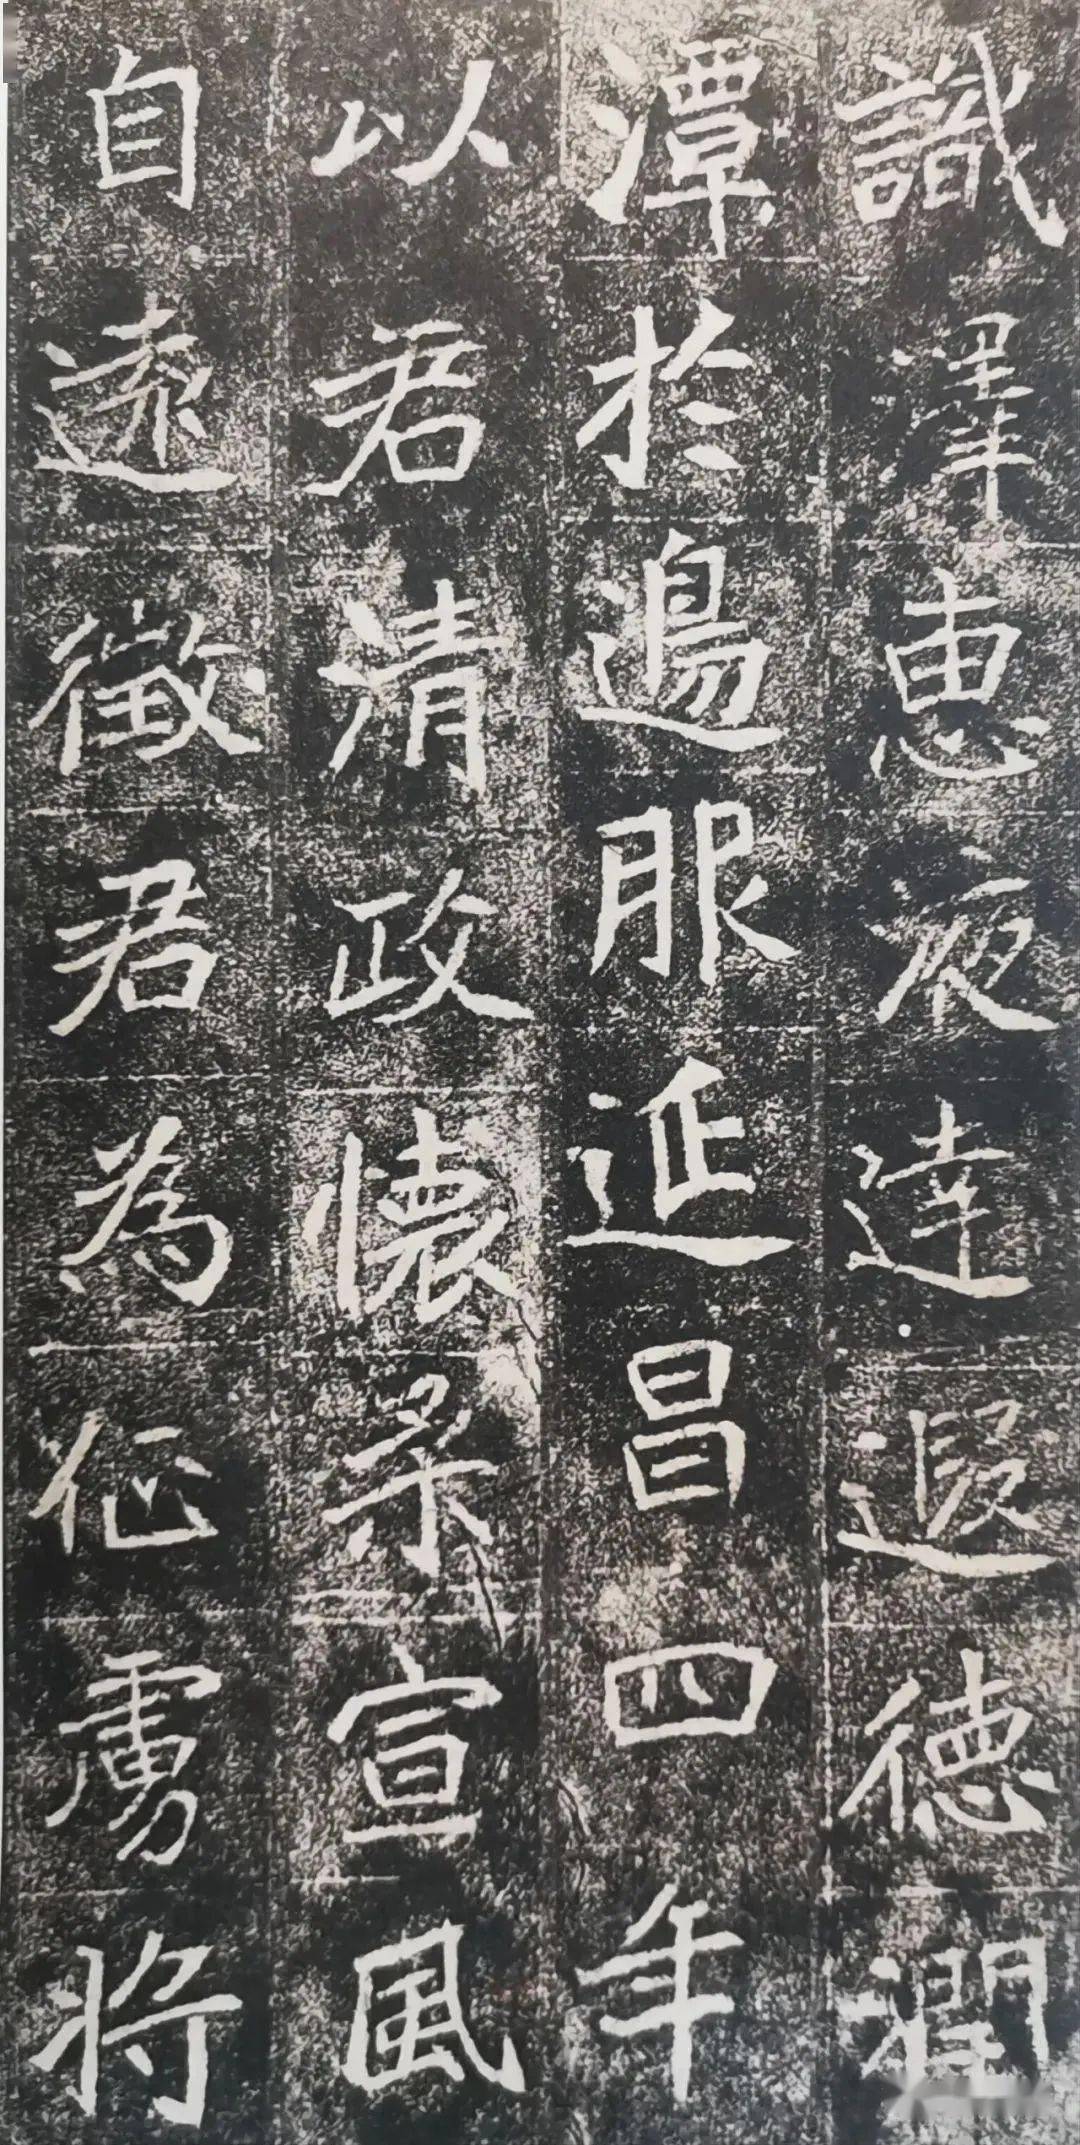 識澤惠液達遐德潤
潭於邊服延昌四年
以君清政懷柔宣風
自遠徵君為征虜將